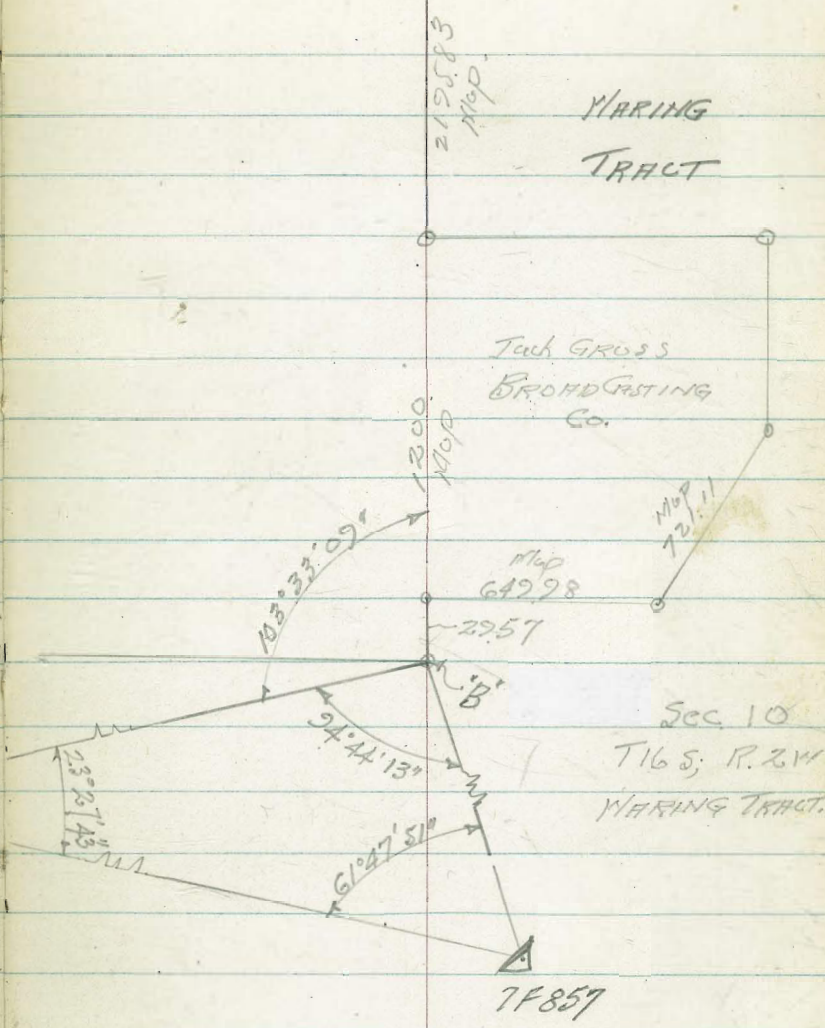 2195.83
Map.
WARING
TRACT
Jack GROSS
BROADCASTING
Co.
1200.
Map
Map
721.11
103°33'09"
Map
649.98
29.57
"B"
94°44'13"
Sec 10
T16 S; R. 2W
WARING TRACT.
23°27'43"
61°47'51"
7F857